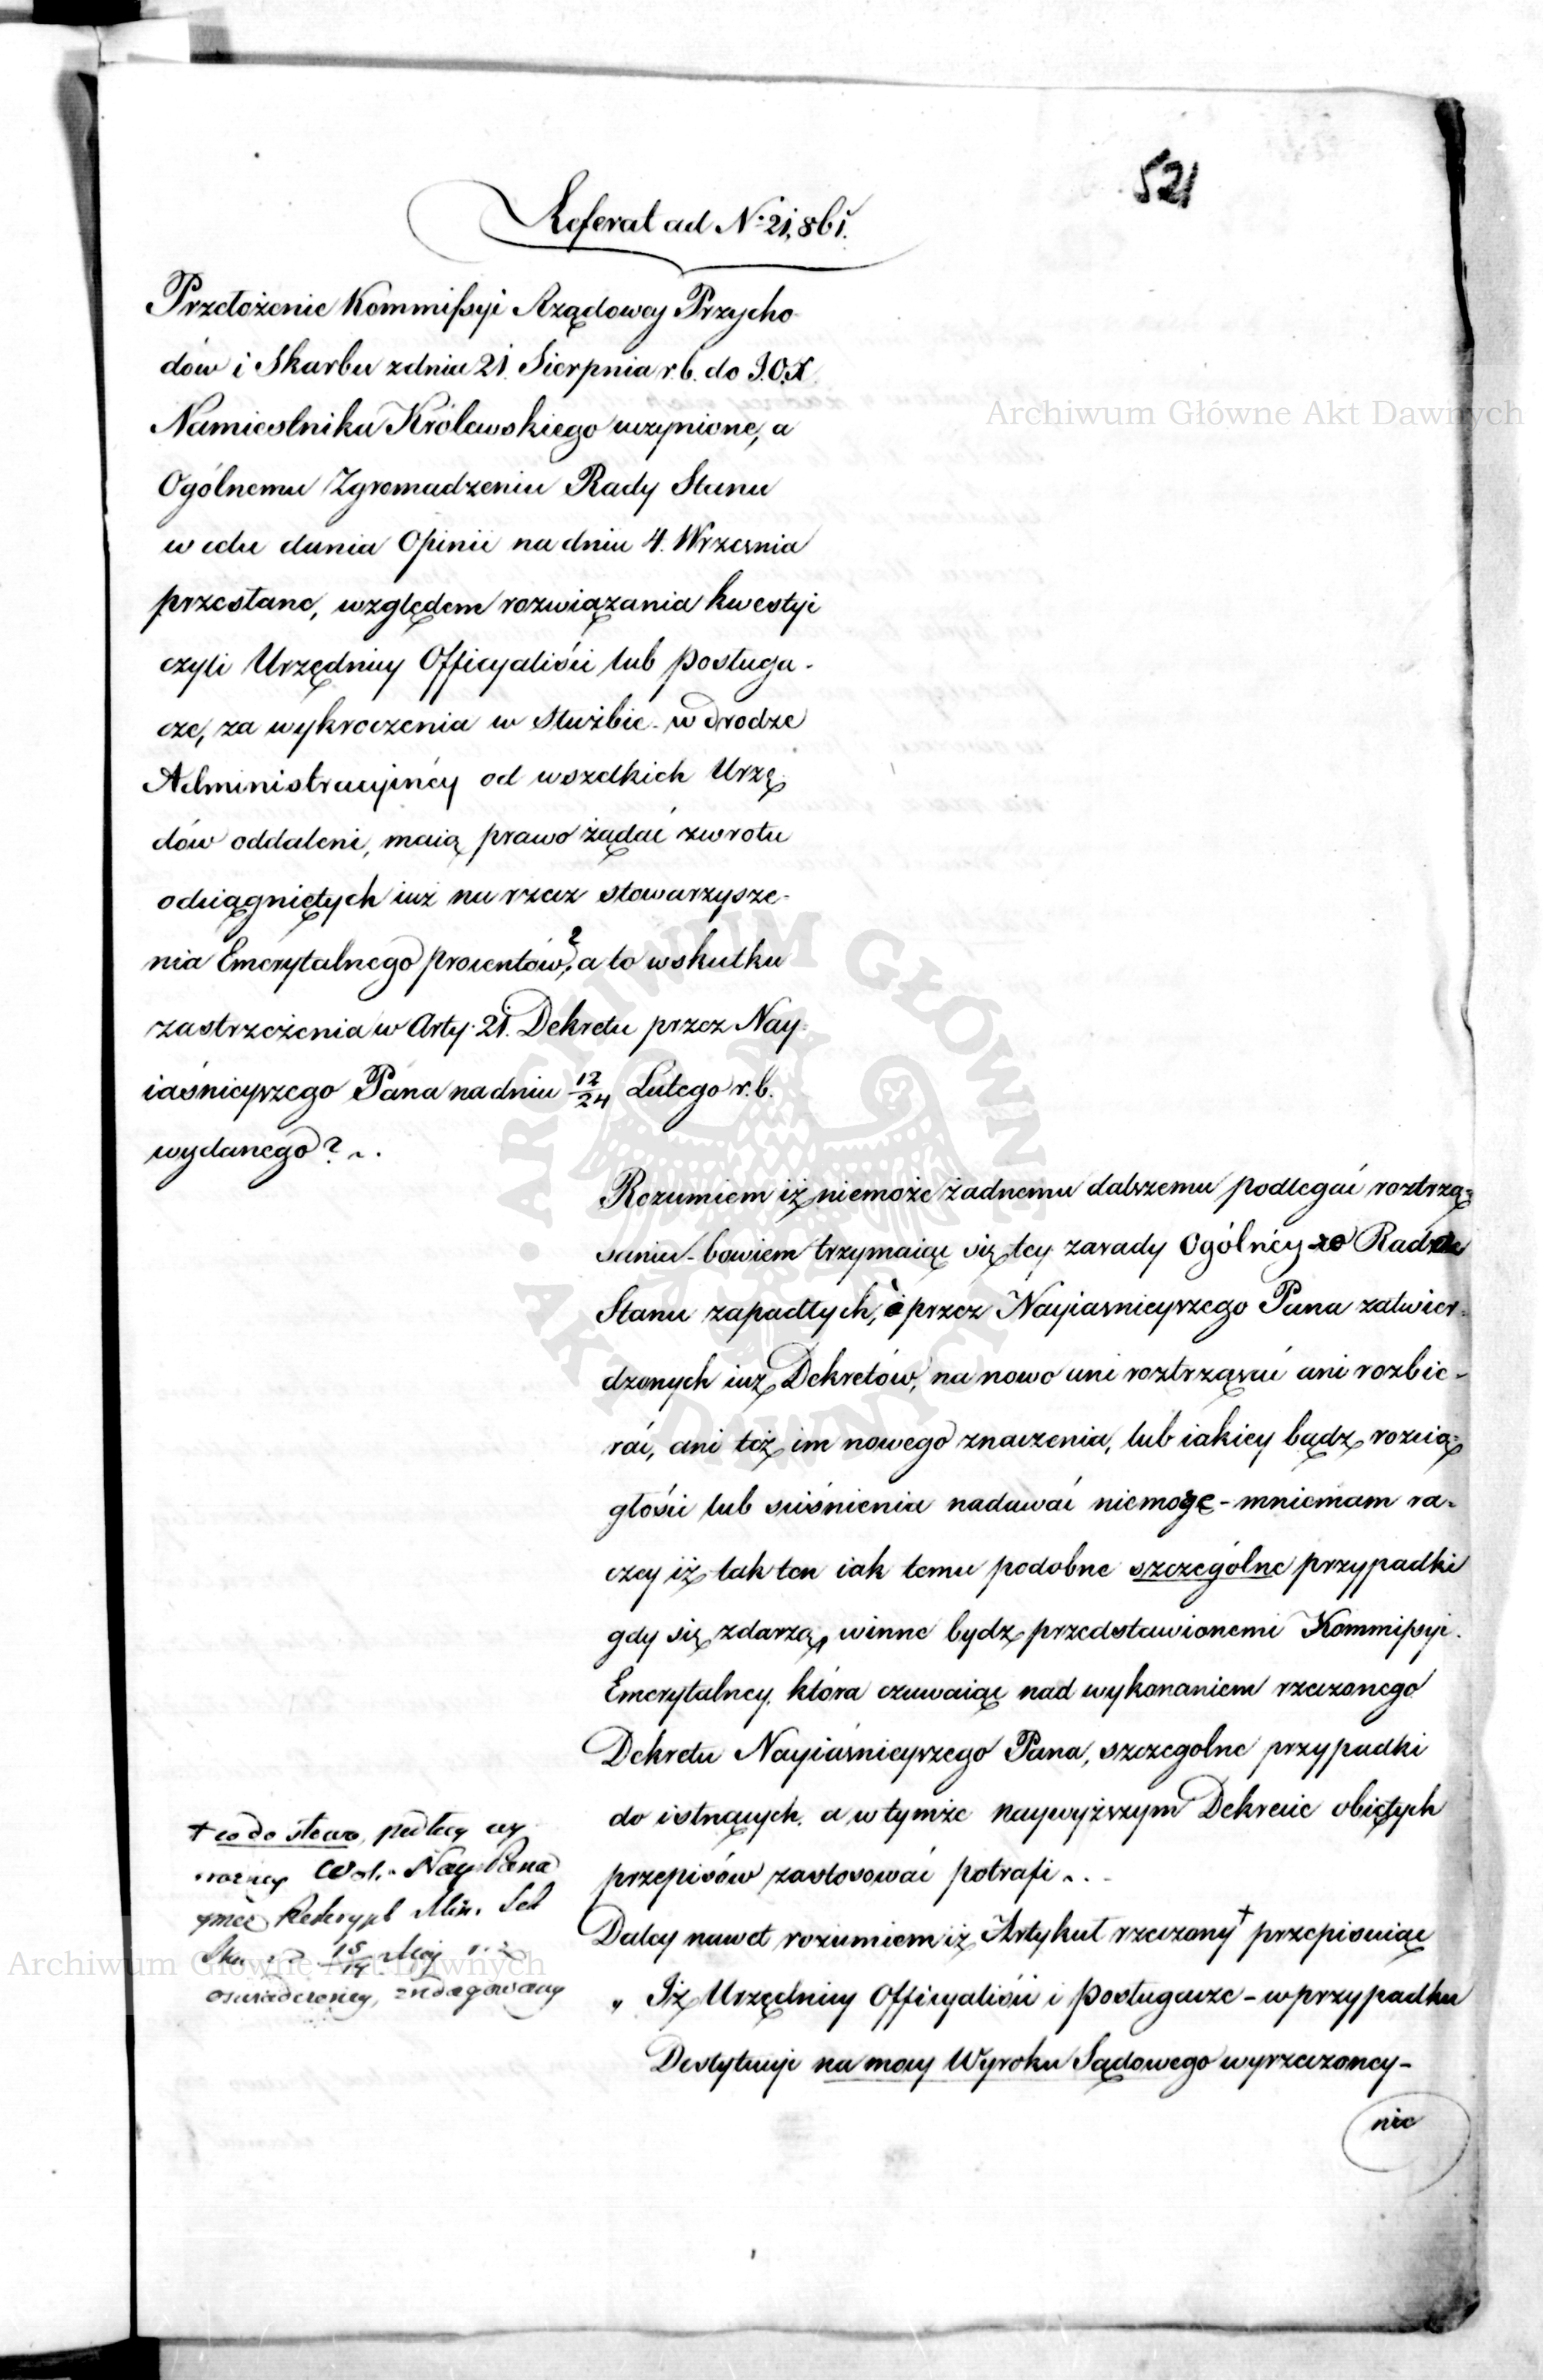 521
Referat ad No 21,861.
Przełożenie Kommissyi Rządowey Przycho
dów i Skarbu z dnia 21. Sierpnia r.b. do J.O.X.
Namiestnika Królewskiego uczynione, a
Ogólnemu Zgromadzeniu Rady Stanu
w celu dania Opinii na dniu 4. Września
przesłane, względem rozwiązania kwestyi
czyli Urzędnicy Officyaliści lub posługa-
cze, za wykroczenia w służbie - w drodze
Administracyinéy od wszelkich Urzę-
dów oddaleni, maią prawo żądać zwrotu
odciągniętych iuż na rzecz stowarzysze-
nia Emerytalnego procentów? a to w skutku
zastrzeżenia w Arty. 21. Dekretu przez Nay-
iaśnieyszego Pana na dniu 12/24 Lutego r.b.
wydanego? ~.
Rozumiem iż niemoże żadnemu dalszemu podlegać roztrzą=
saniu - bowiem trzymaiąc się tey zasady Ogólnéy że Rada
Stanu zapadłych, i przez Nayiaśnieyszego Pana zatwier-
dzonych iuż Dekretów, na nowo ani roztrząsać ani rozbie-
rać, ani też im nowego znaczenia, lub iakiey bądź rozcią=
głości lub ściśnienia nadawać niemoże - mniemam ra-
czey iż tak ten iak temu podobne szczególne przypadki
gdy się zdarzą, winne bydź przedstawionemi Kommissyi
Emerytalney, która czuwaiąc nad wykonaniem rzeczonego
Dekretu Nayiaśnieyszego Pana, szczegolne przypadki
do istnących, a w tymże naywyższym Dekrecie obiętych
przepisów zastosować potrafi ~.
Daley nawet rozumiem iż Artykuł rzeczony + przepisuiąc
„ Iż Urzędnicy Officyaliści i posługacze - w przypadku
Destytucyi na mocy Wyroku Sądowego wyrzeczoney -
nic
+ co do słowa, podług wy
raźney Woli Nay. Pana
przez Reskrypt Min. Sek
Sta. z d. 15 May r.b.
oświadczoney, zredagowany
Archiwum Główne Akt Dawnych
Archiwum Główne Akt Dawnych
ARCHIWUM GŁÓWNE
AKT DAWNYCH